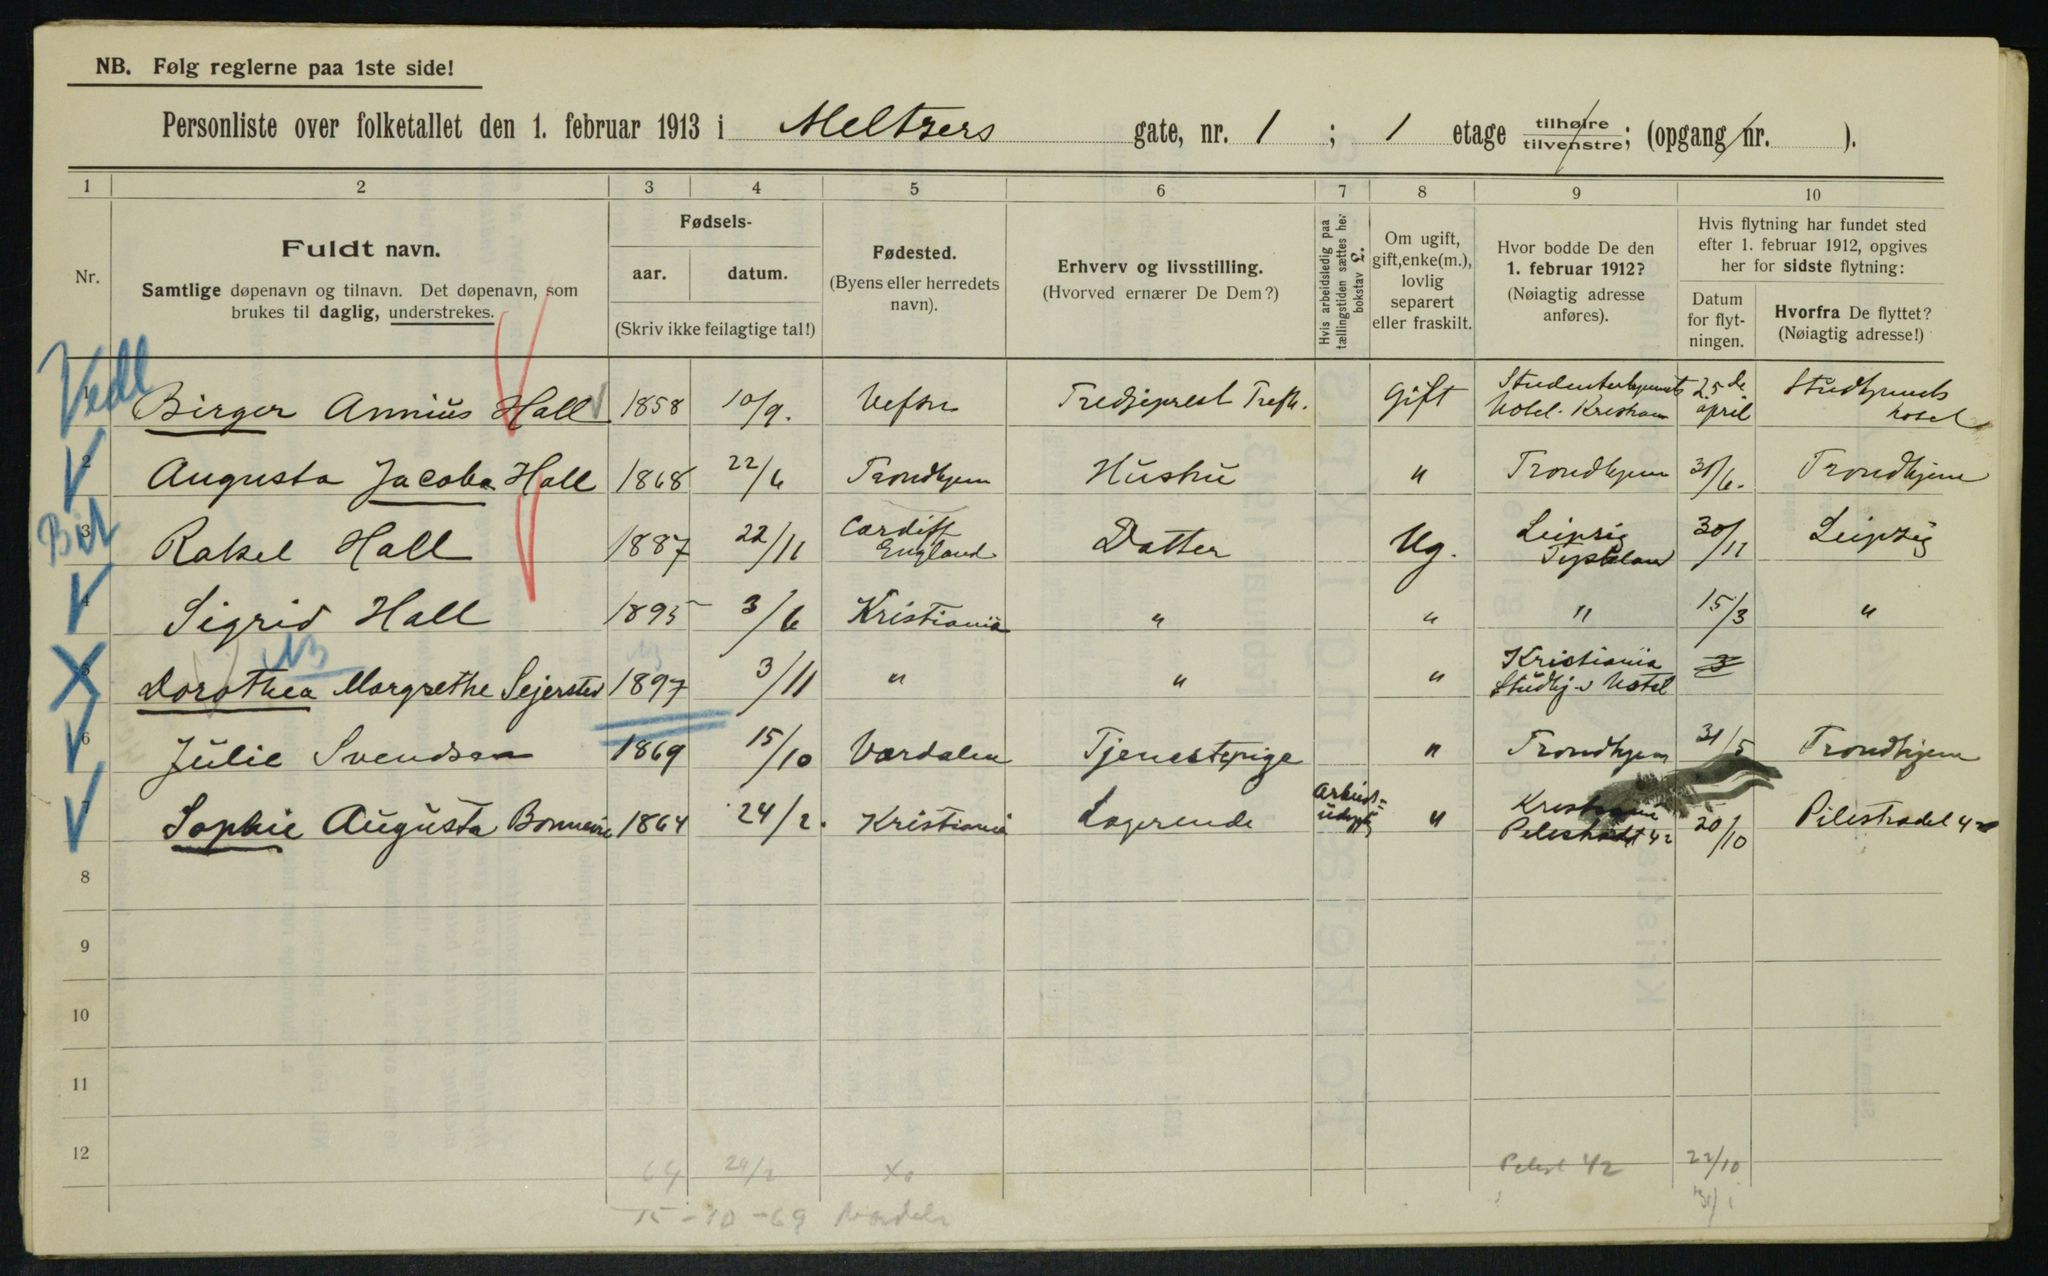 NB. Følg reglerne paa 1ste side!
Personliste over folketallet den 1. februar 1913 i Meltzers gate, nr. 1 ; 1 etage tilhøire tilvenstre; (opgang nr. ).
1 2 3 4 5 6 7 8 9 10
Nr.
Fuldt navn.
Samtlige døpenavn og tilnavn. Det døpenavn, som
brukes til daglig, understrekes.
Fødsels-
aar. datum.
(Skriv ikke feilagtige tal!)
Fødested.
(Byens eller herredets
navn).
Erhverv og livsstilling.
(Hvorved ernærer De Dem?)
Hvis arbeidsledig paa
tællingstiden sættes her
bokstav L.
Om ugift,
gift, enke(m.),
lovlig
separert
eller fraskilt.
Hvor bodde De den
1. februar 1912?
(Nøiagtig adresse
anføres).
Hvis flytning har fundet sted
efter 1. februar 1912, opgives
her for sidste flytning:
Datum
for flyt-
ningen.
Hvorfra De flyttet?
(Nøiagtig adresse!)
Vedl
1 Birger Annius Hall 1858 10/9. Vefsn Tredjeprest Trefh. Gift Studenterhjemmets Hotel. Kristiania 25de april Studhjemmets hotel
2 Augusta Jacoba Hall 1868 22/6 Trondhjem Hustru " Trondhjem 30/6. Trondhjem
Bil
3 Rakel Hall 1887 22/11 Cardiff England Datter Ug. Leipzig Tyskland 30/11 Leipzig
4 Sigrid Hall 1895 3/6 Kristiania " " " 15/3 "
5 Dorothea Margrethe Sejersted 1897 3/11 " " " Kristiania Studhj-s Hotel
6 Julie Svendsen 1869 15/10 Værdalen Tjenestepige " Trondhjem 31/5 Trondhjem
7 Sophie Augusta Bonnevie 1864 24/2. Kristiania Logerende " Kristiania Pilestrædet 42 20/10 Pilestrædet 42
8
9
10
11
12 64 24/2 Xa Pilest 42 22/10
15-10-69